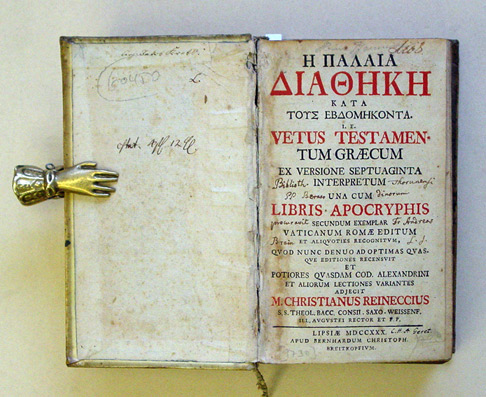 Η ΠΑΛΑΙΑ
ΔΙΑΘΗΚΗ
ΚΑΤΑ
ΤΟΥΣ ΕΒΔΟΜΗΚΟΝΤΑ.
I. E.
VETUS TESTAMEN-
TUM GRÆCUM
EX VERSIONE SEPTUAGINTA
Biblioth. INTERPRETUM
UNA CUM
LIBRIS APOCRYPHIS
SECUNDUM EXEMPLAR Fr Andreas
VATICANUM ROMÆ EDITUM
ET ALIQVOTIES RECOGNITUM,
QUOD NUNC DENUO AD OPTIMAS QUAS-
QVE EDITIONES RECENSVIT
ET
POTIORES QUASDAM COD. ALEXANDRINI
ET ALIORUM LECTIONES VARIANTES
ADJECIT
M. CHRISTIANUS REINECCIUS
S. S. THEOL. BACC. CONSIL. SAXO-WEISSENF.
ILL. AUGUSTEI RECTOR ET P. P.
LIPSIÆ MDCCXXX.
APUD BERNHARDUM CHRISTOPH.
BREITKOPFIUM.